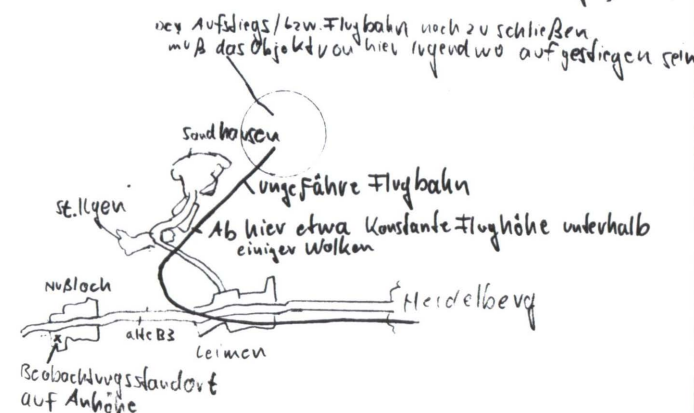 Der Aufstiegs/bzw. Flugbahn nach zu schließen
muß das Objekt von hier irgendwo aufgestiegen sein
Sandhausen
ungefähre Flugbahn
St. Ilgen
Ab hier etwa Konstante Flughöhe unterhalb
einiger Wolken
Nußloch
Heidelberg
alte B3
Leimen
Beobachtungsstandort
auf Anhöhe